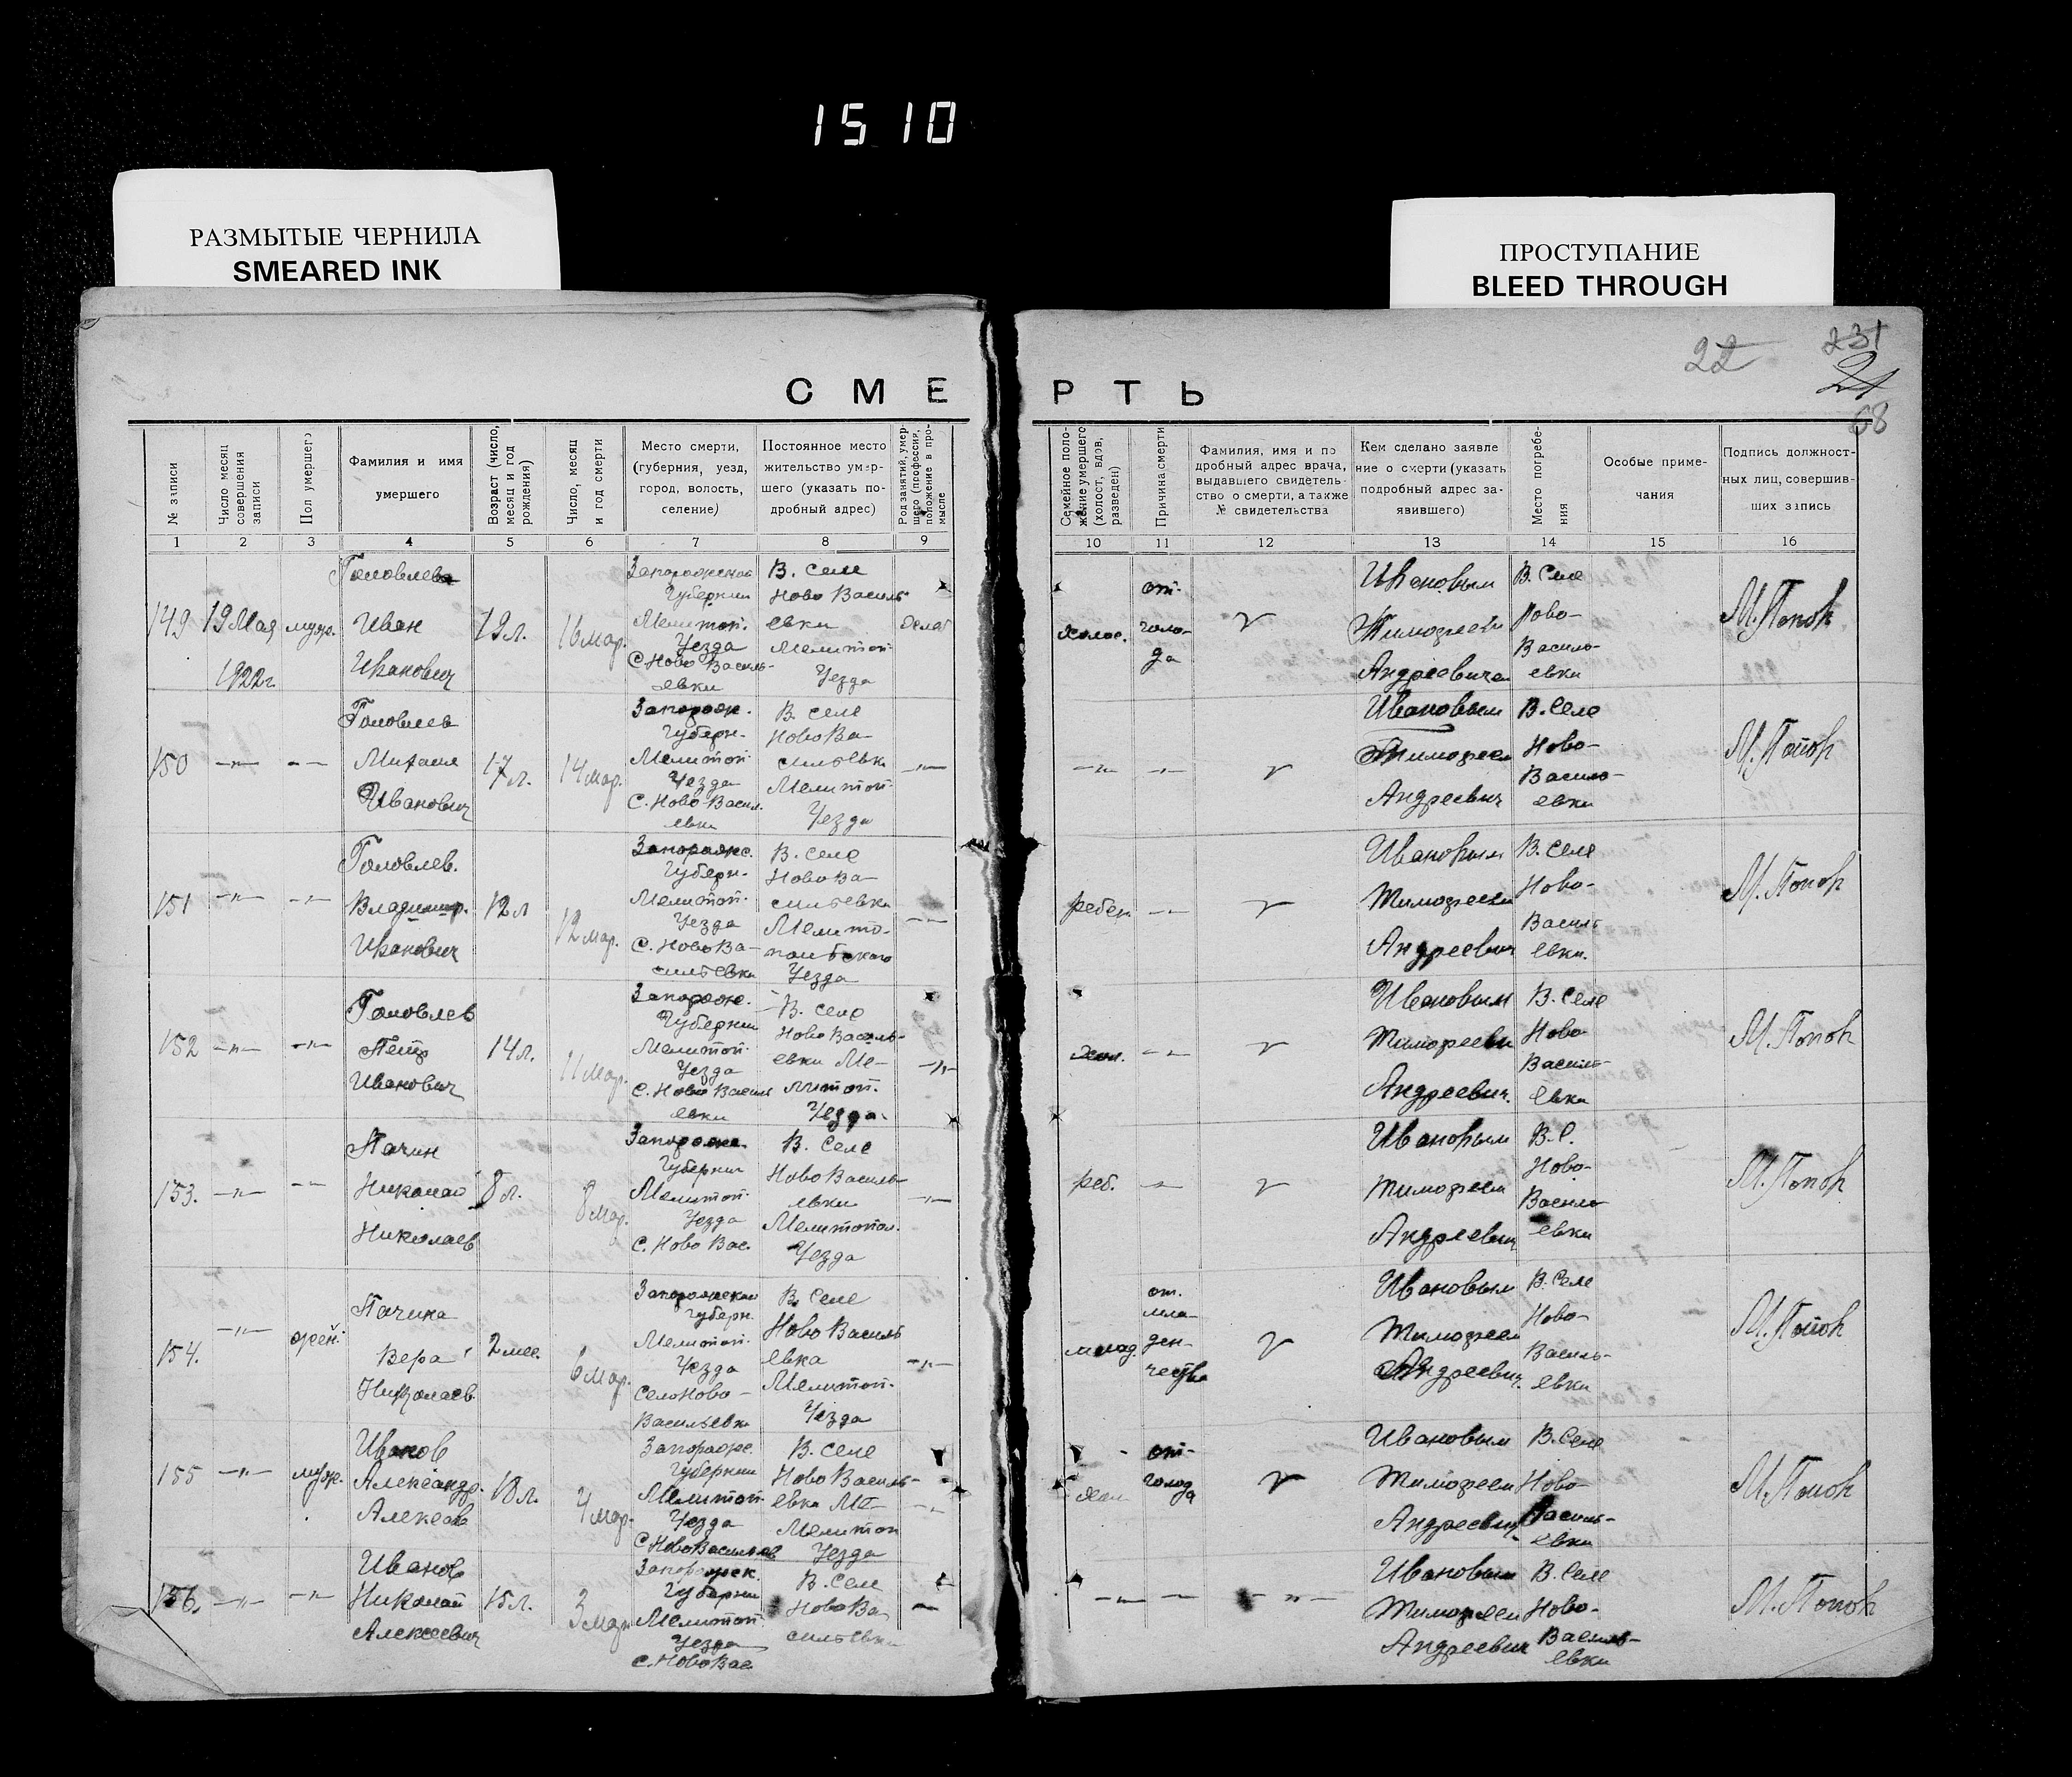 1510
РАЗМЫТЫЕ ЧЕРНИЛА
SMEARED INK
ПРОСТУПАНИЕ
BLEED THROUGH
22
231
21
68
СМЕРТЬ
№ записи
Число месяц совершения записи
Пол умершего
Фамилия и имя умершего
Возраст (число, месяц и год рождения)
Число, месяц и год смерти
Место смерти, (губерния, уезд, город, волость, селение)
Постоянное место жительство умершего (указать подробный адрес)
Род занятий, умершего (профессия, положение в промысле
Семейное положение умершего (холост, вдов, разведен)
Причина смерти
Фамилия, имя и подробный адрес врача, выдавшего свидетельство о смерти, а также № свидетельства
Кем сделано заявление о смерти (указать подробный адрес заявившего)
Место погребения
Особые примечания
Подпись должностных лиц, совершивших запись
1 2 3 4 5 6 7 8 9 10 11 12 13 14 15 16
149 19 Мая 1922г. муж.
Головлев
Иван
Иванович
19л. 16 мар.
Запорожской
Губернии
Мелитоп.
Уезда
С. Ново Василь-
евки
В. Селе
Ново Василь-
евки
Мелитоп.
Уезда
холос.
от-
голо-
да
Ивановым
Тимофеем
Андреевичем
В. Селе
Ново-
Василь-
евки
М. Попов
150 -"- -"-
Головлев
Михаил
Иванович
17л. 14 мар.
Запорож.
Губерн.
Мелитоп.
Уезда
С. Ново Васил.
евки
В. селе
Ново Ва-
сильевки
Мелитоп.
Уезда
-"-
-"- -"-
Ивановым
Тимофеем
Андреевич
В. Селе
Ново-
Василь-
евки
М. Попов
151 -"- -"-
Головлев.
Владимир.
Иванович
12л 12 мар.
Запорож.
Губерн.
Мелитоп.
Уезда
С. Ново Ва-
сильевки
В. селе
Ново Ва-
сильевки
Мелито-
польского
Уезда
-"-
ребен. -"-
Ивановым
Тимофеем
Андреевич
В. Селе
Ново-
Василь
евки.
М. Попов
152 -"- -"-
Головлев
Петр
Иванович
14л. 11 мар.
Запорож.
Губернии
Мелитоп.
Уезда
С. Ново Василь
евки
В. селе
Ново Василь-
евки Ме-
литоп.
Уезда.
-"-
хол. -"-
Ивановым
Тимофеем
Андреевич.
В. Селе
Ново
Василь-
евки
М. Попов
153. -"- -"-
Пачин
Николай
Николаев
8л. 8 мар.
Запорож.
Губернии
Мелитоп.
Уезда
С. Ново Вас.
В. Селе
Ново Василь-
евки
Мелитопол.
Уезда
-"-
реб. -"-
Ивановым
Тимофеем
Андреевич
В. С.
Ново-
Василь
евки
М. Попов
154. -"- жен.
Пачина
Вера
Николаев
2 мес. 6 мар.
Запорожской
Губерн.
Мелитоп.
Уезда
Село Ново-
Васильевки
В. Селе
Ново Василь
евка
Мелитоп.
Уезда
-"-
млад.
от.
мла-
ден-
чества
Ивановым
Тимофеем
Андреевич.
В. Селе
Ново-
Василь-
евки
М. Попов
155 -"- муж.
Иванов
Александр.
Алексеев
18л. 4 мар.
Запорож.
Губернии
Мелитоп.
Уезда
С. Ново Васильев
В. Селе
Ново Василь-
евки МЕ-
Мелитоп
Уезда
-"-
хол.
от-
голода
Ивановым
Тимофеем
Андреевич
В. Селе
Ново-
Василь-
евки
М. Попов
156. -"- -"-
Иванов
Николай
Алексеевич
15л. 3 мар.
Запорожск.
Губернии
Мелитоп.
Уезда
С. Ново Вас.
В. Селе
Ново Ва-
сильевки
-"-
-"- -"- -"-
Ивановым
Тимофеем
Андреевич
В. Селе
Ново-
Василь-
евки
М. Попов